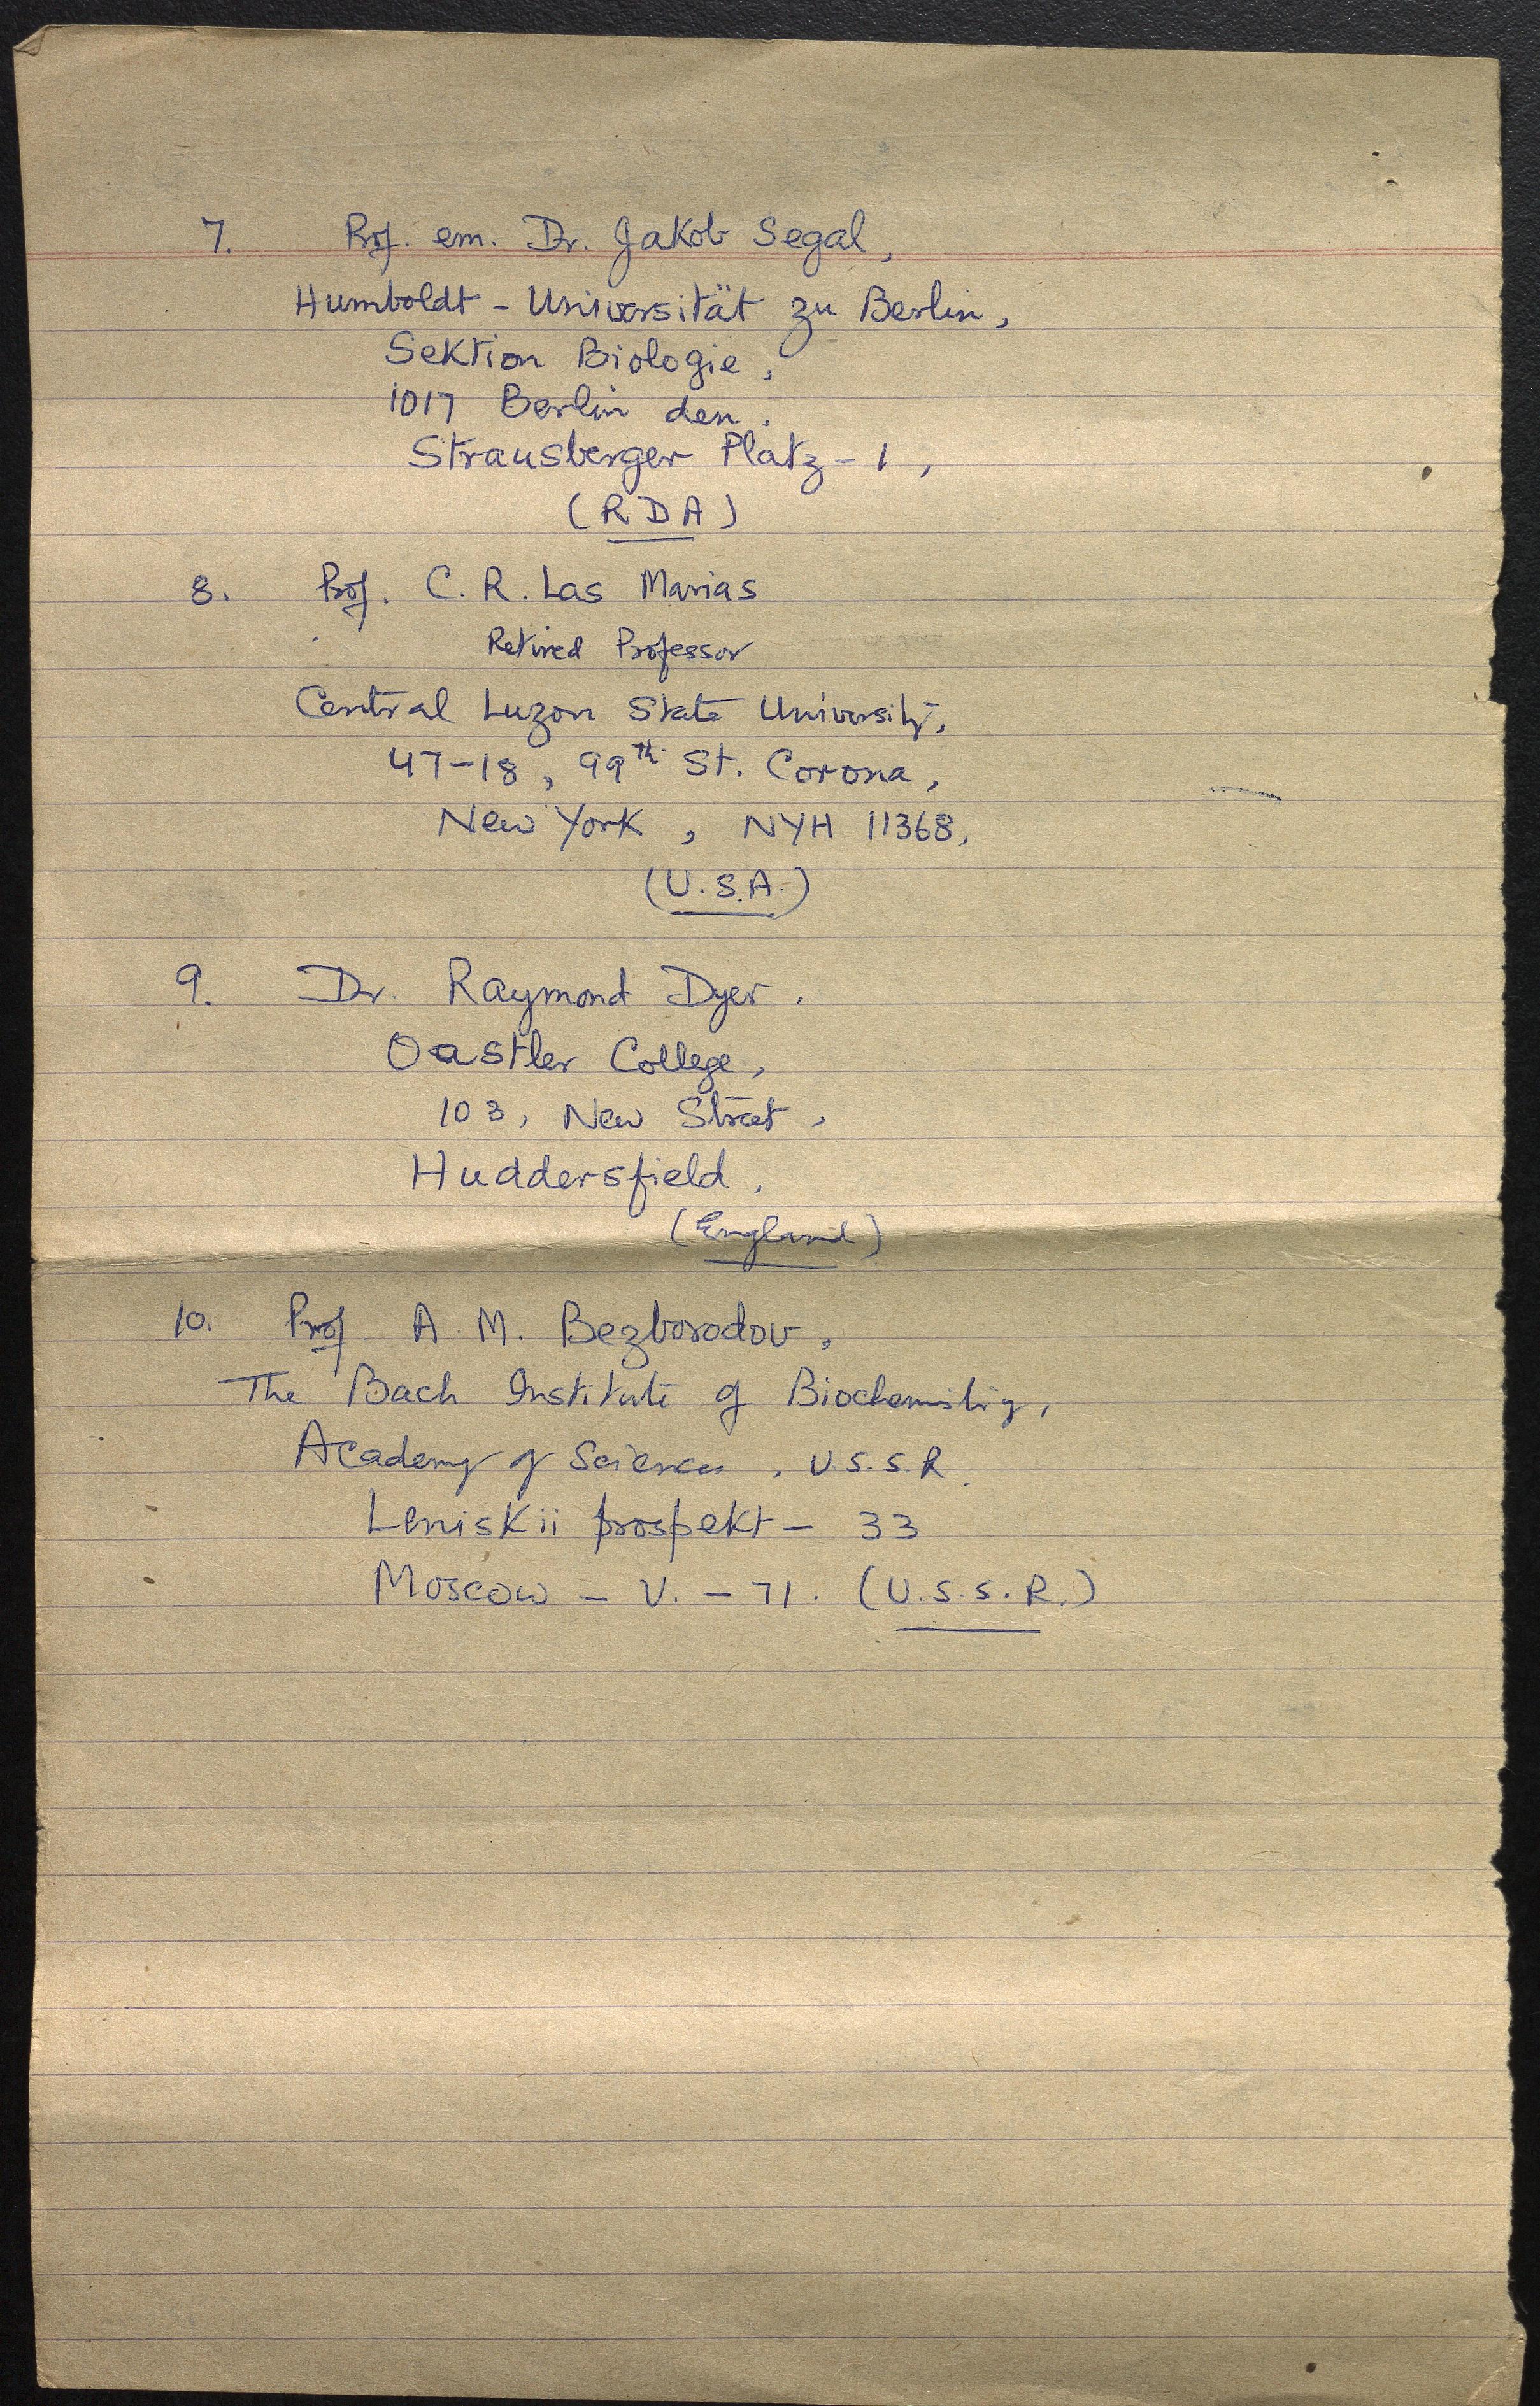 7. Prof. em. Dr. Jakob Segal,
Humboldt - Universität zu Berlin,
Sektion Biologie,
1017 Berlin den.
Strausberger Platz - 1,
(RDA)
8. Prof. C. R. Las Marias
Retired Professor
Central Luzon State University,
47-18, 99th St. Corona,
New York, NYH 11368,
(U.S.A.)
9. Dr. Raymond Dyer,
Oastler College,
103, New Street,
Huddersfield,
(England)
10. Prof. A. M. Bezborodov,
The Bach Institute of Biochemistry,
Academy of Sciences, U.S.S.R.
Leniskii prospekt - 33
Moscow - V. - 71. (U.S.S.R.)